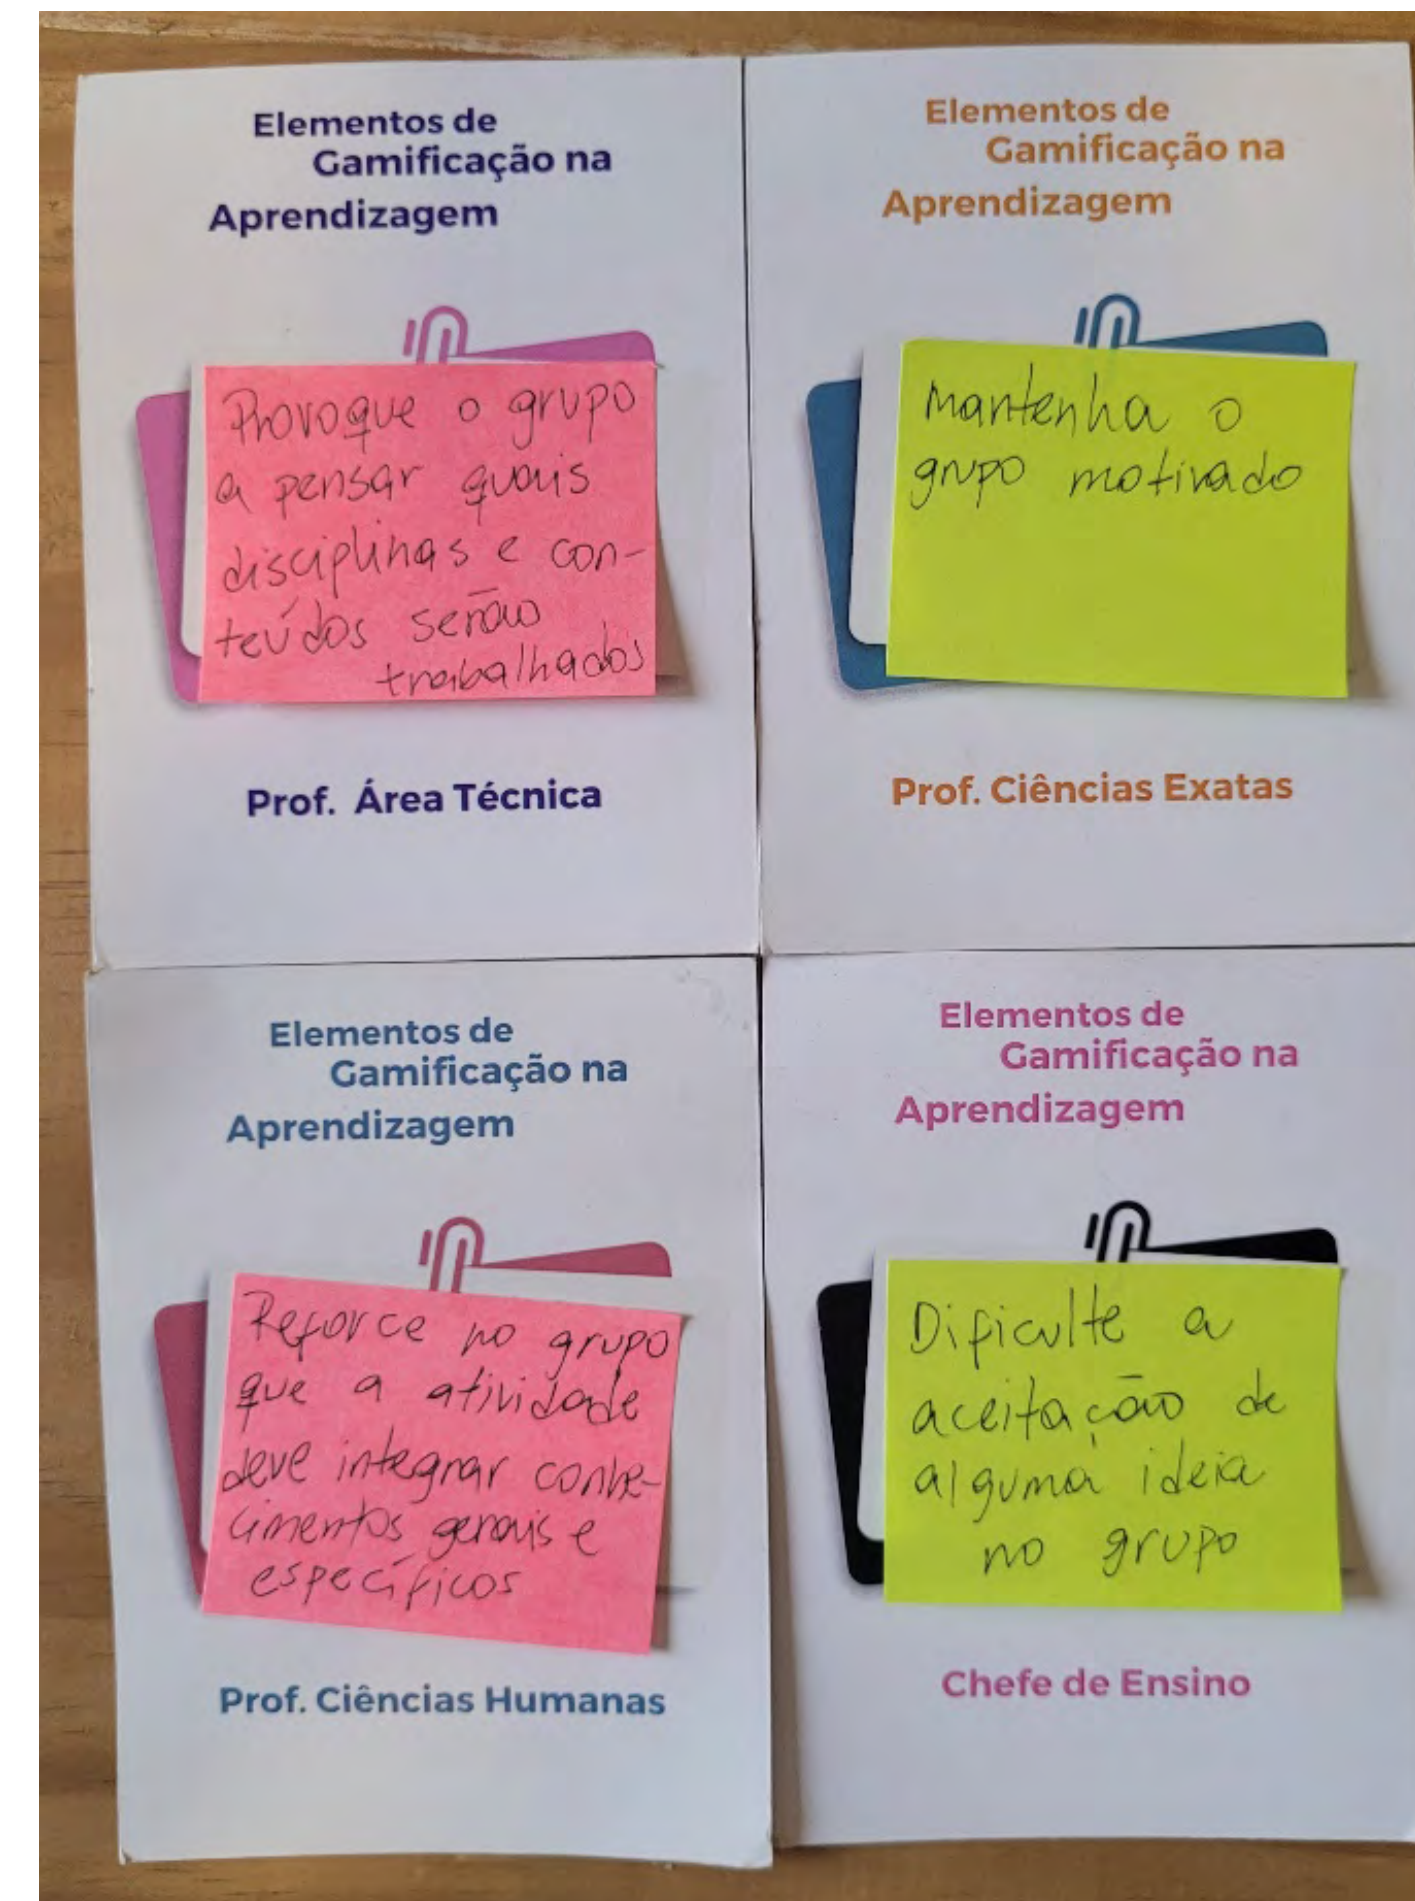 Elementos de
Gamificação na
Aprendizagem
Provoque o grupo
a pensar quais
disciplinas e con-
teúdos serão
trabalhados
Prof. Área Técnica
Elementos de
Gamificação na
Aprendizagem
Mantenha o
grupo motivado
Prof. Ciências Exatas
Elementos de
Gamificação na
Aprendizagem
Reforce no grupo
que a atividade
deve integrar conhe-
cimentos gerais e
específicos
Prof. Ciências Humanas
Elementos de
Gamificação na
Aprendizagem
Dificulte a
aceitação de
alguma ideia
no grupo
Chefe de Ensino